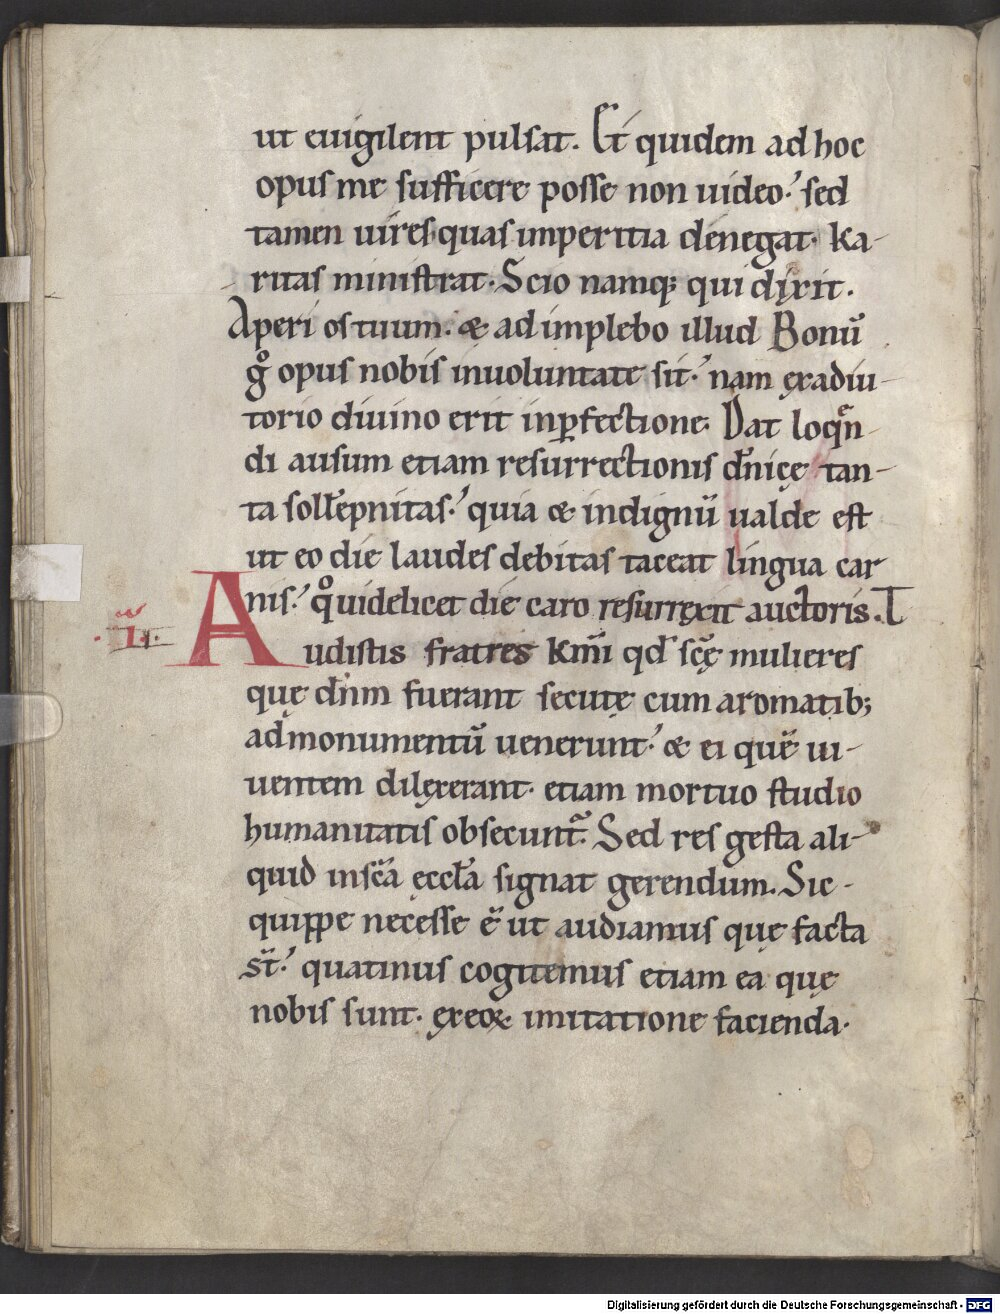 ut euigilent pulsat. Et quidem ad hoc
opus me sufficere posse non uideo. sed
tamen uires quas imperitia denegat. ka-
ritas ministrat. Scio namq; qui dixit.
Aperi os tuum. & ad implebo illud Bonū
gͦ opus nobis inuoluntate sit. nam ęxadiu-
torio diuino erit inꝑfectione. Dat loq̄n-
di ausum etiam resurrectionis dn̄icę tan-
ta soll̄epnitas. quia & indignū ualde est
ut eo die laudes debitas taceat lingua car
nis. qͦ uidelicet die caro resurręxit auctoris. T
.ii.
Audistis fratres km̄i qd̄ sc̄ę mulieres
quę dn̄m fuerant secutę cum aromatib;
ad monumentū uenerunt. & ei quē ui-
uentem dilęxerant. etiam mortuo studio
humanitatis obsecunt̄. Sed res gesta ali-
quid insc̄a ęccl̄a signat gerendum. Sic-
quippe necesse ē ut audiamus quę facta
st̄. quatinus cogitemus etiam ea quę
nobis sunt. ęxeoꝝ imitatione facienda.
Digitalisierung gefördert durch die Deutsche Forschungsgemeinschaft - DFG